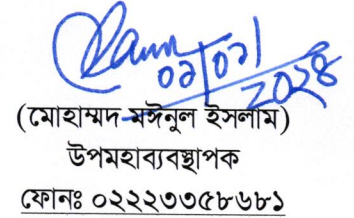 ০১/০১/
২০২৪
(মোহাম্মদ মঈনুল ইসলাম)
উপমহাব্যবস্থাপক
ফোনঃ ০২২২৩৩৫৮৬৮১